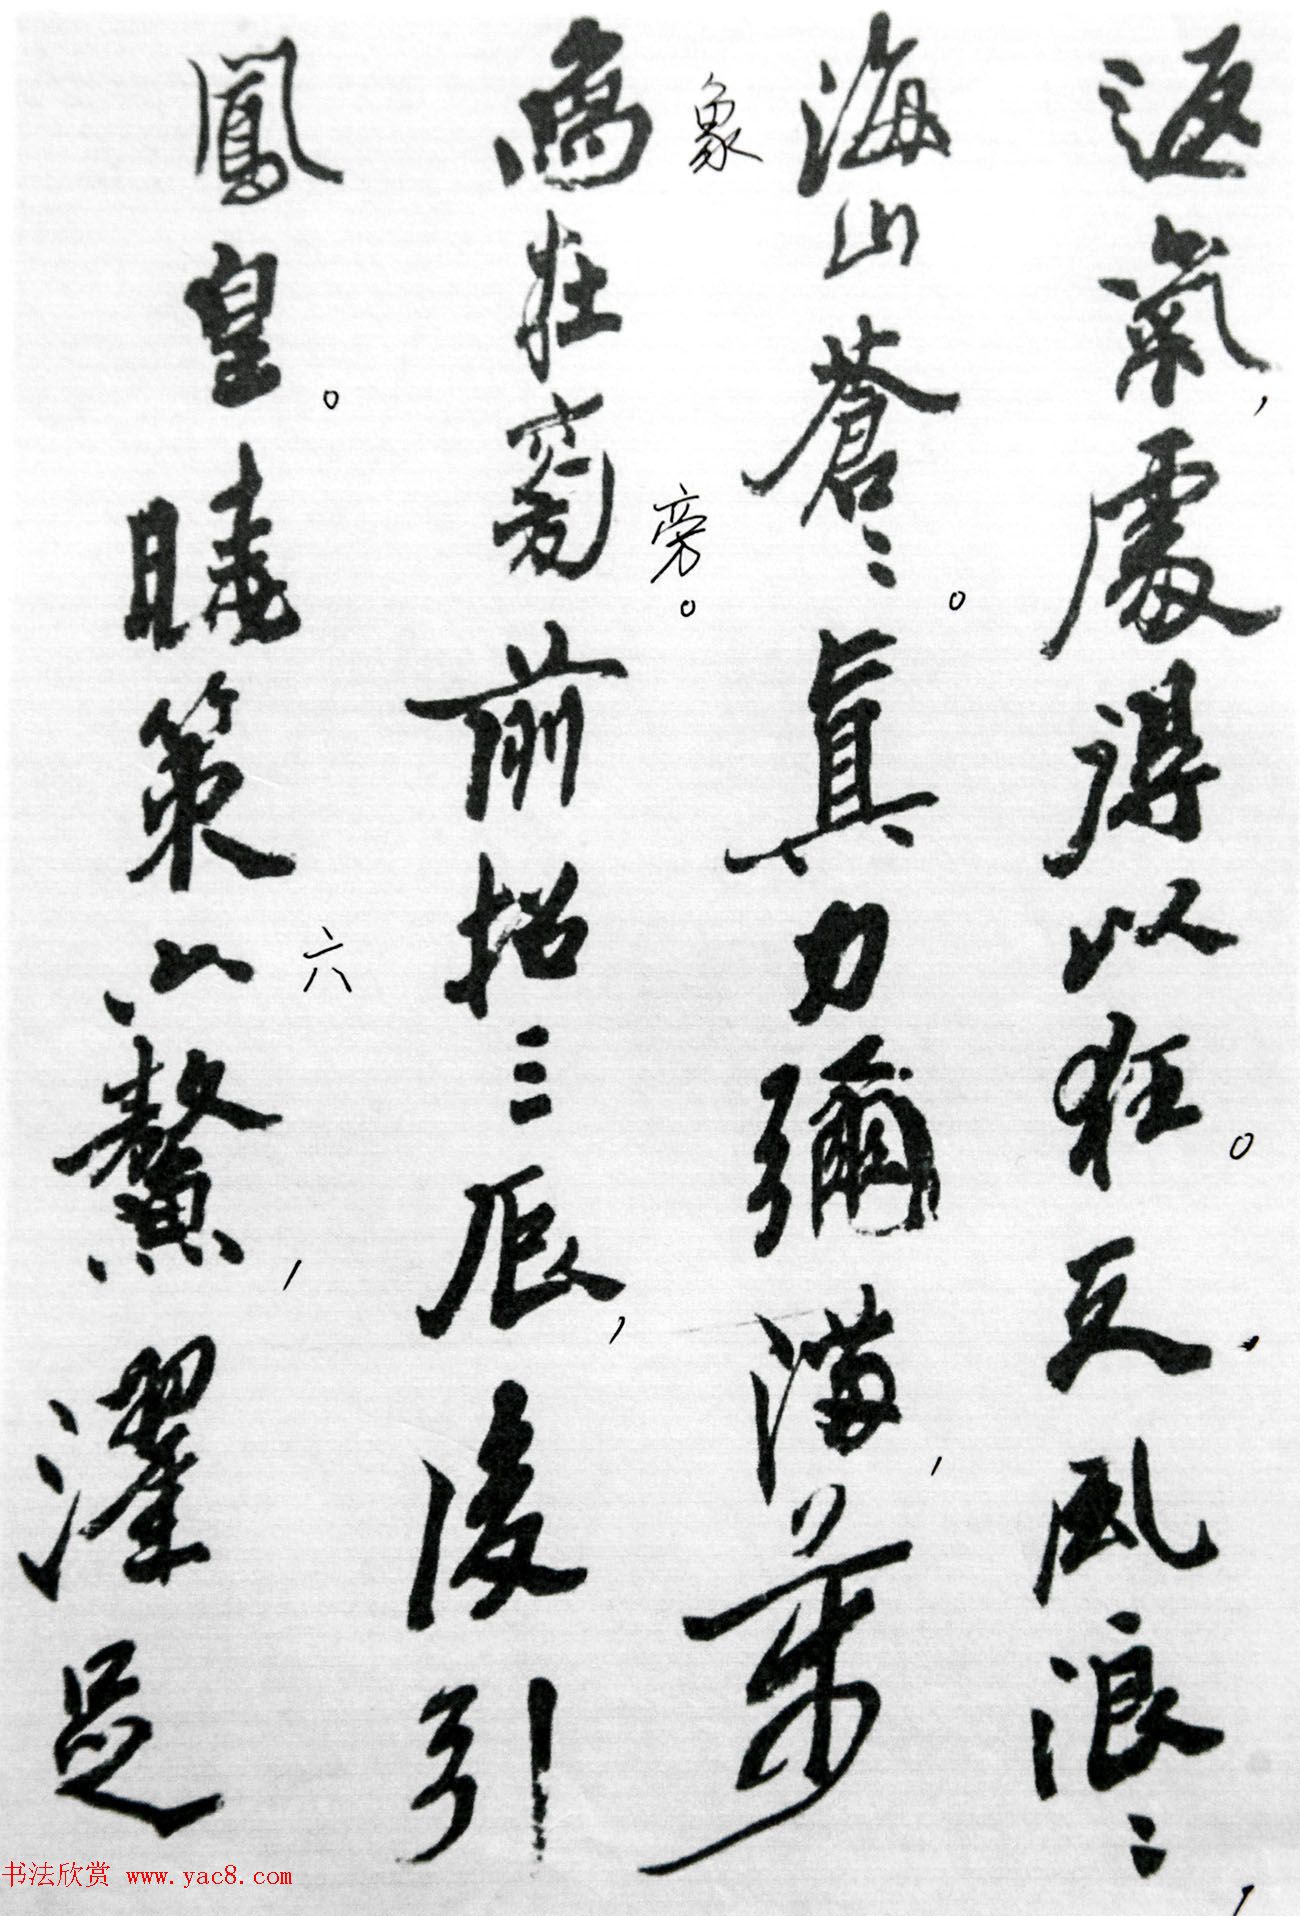 返氣，處得以狂。天風浪〻，
海山蒼〻。真力彌滿，萬
象在旁。前招三辰，後引
鳳皇。曉策六鼇，濯足
象
旁。
六
书法欣赏 www.yac8.com